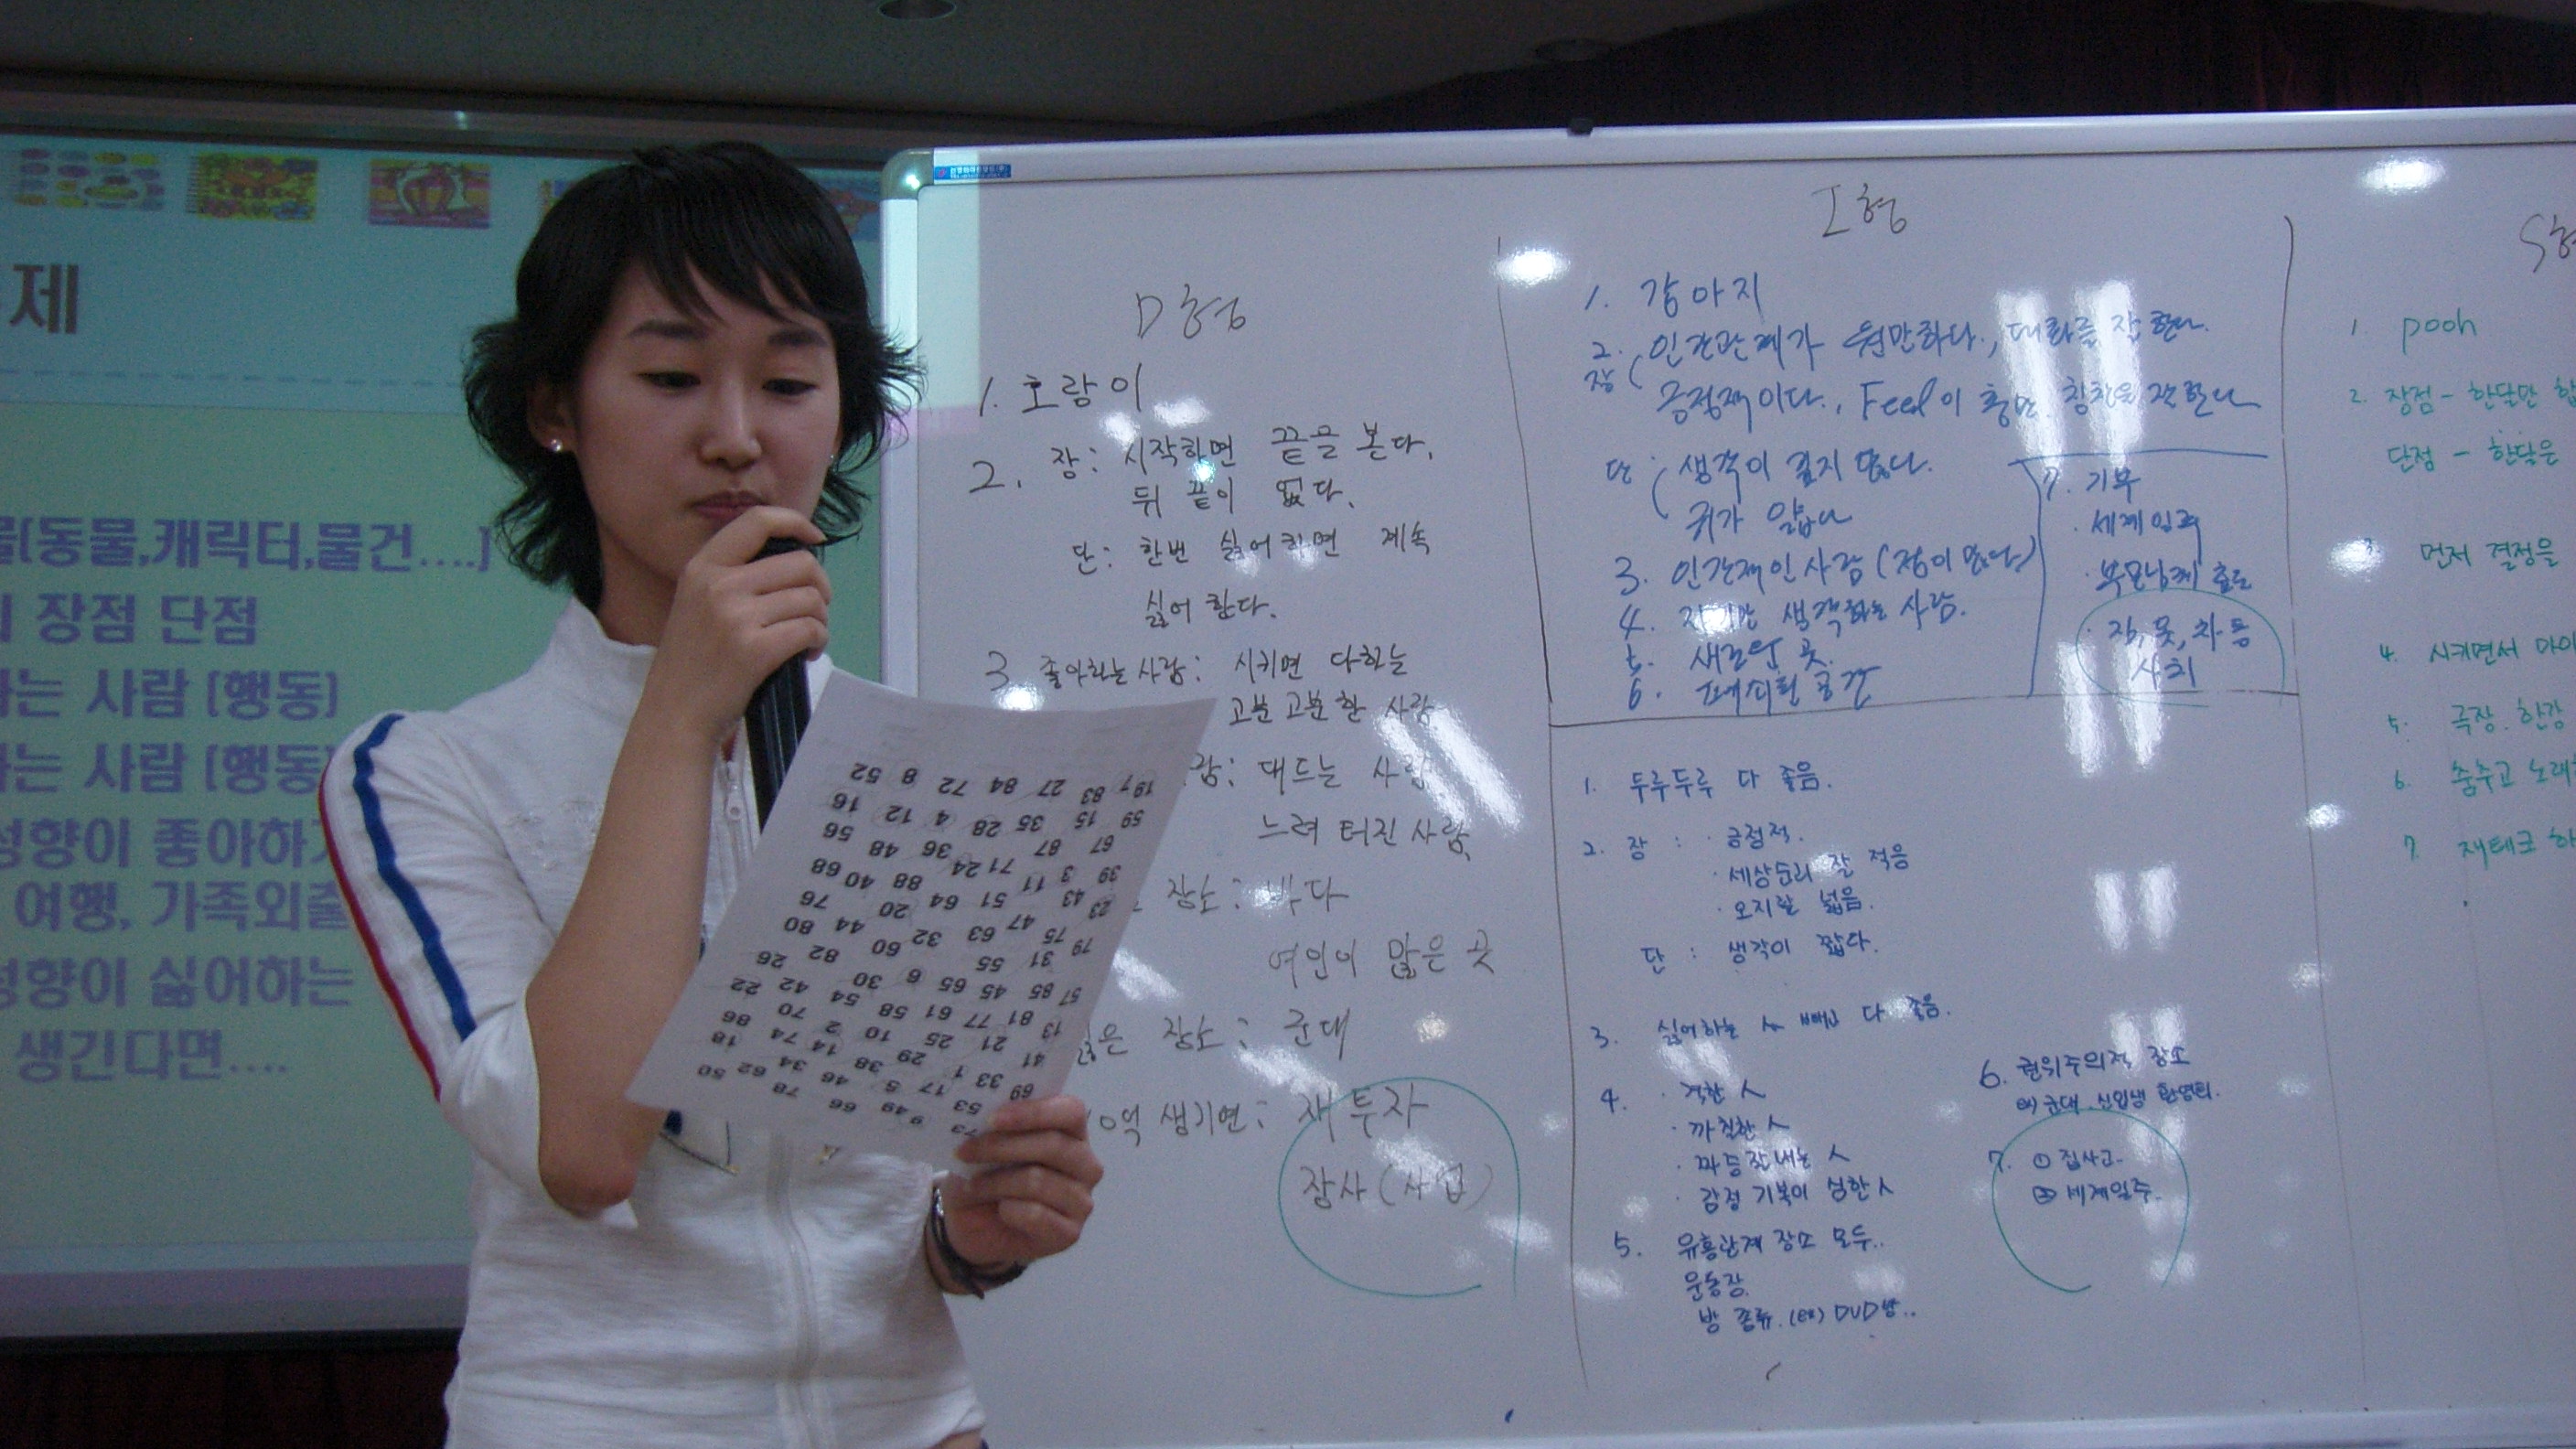 제
[동물,캐릭터,물건....]
장점 단점
는 사람 [행동]
는 사람 [행동]
성향이 좋아하
여행, 가족외출
성향이 싫어하는
생긴다면....
D형
1. 호랑이
2. 장: 시작하면 끝을 본다.
뒤 끝이 없다.
단: 한번 싫어하면 계속
싫어 한다.
3 좋아하는 사람: 시키면 다하는
고분 고분 한 사람
람: 대드는 사람
느려 터진 사람,
장소: 바다
여인이 많은 곳
은 장소: 군대
0억 생기면: 재투자
장사 (사업)
I형
1. 강아지
2. 인간관계가 원만하다, 대화를 잘 한다.
장 긍정적이다., Feel이 충만. 칭찬을 잘한다
단 생각이 깊지 않다.
귀가 얇다
3. 인간적인 사람 (정이 많은)
4. 자기만 생각하는 사람.
5. 새로운 곳.
6. 공간
7. 기부
· 세계일주
· 부모님께 효도
· 집, 옷, 차 등
사치
1. 두루두루 다 좋음.
2. 장 : · 긍정적.
· 세상순리 잘 적응
· 오지랖 넓음.
단 : 생각이 짧다.
3. 싫어하는 人 빼고 다 좋음.
4. · 격한 人
· 까칠한 人
· 짜증잘내는 人
· 감정 기복이 심한 人
5. 유흥관계 장소 모두..
운동장.
방 종류. (ex) DVD방..
6. 권위주의적 장소
ex) 군대, 신입생 환영회.
7. ① 집사고.
② 세계일주.
S형
1. pooh
2. 장점 - 한달만
단점 - 한달은
3. 먼저 결정을
4. 시키면서
5. 극장. 한강
6. 춤추고 노래
7. 재테크 하
19 7 83 27 84 72 8 52
59 15 35 28 4 12 16
67 87 36 48 56
39 3 11 71 24 88 40 68
23 43 51 64 20 76
75 47 63 32 60 44 80
79 31 55 82 26
57 85 45 65 6 30 42 22
13 81 77 61 58 54 70
41 21 25 10 2 86
33 1 29 38 14 74 18
69 53 17 5 46 34 62 50
73 9 49 66 78